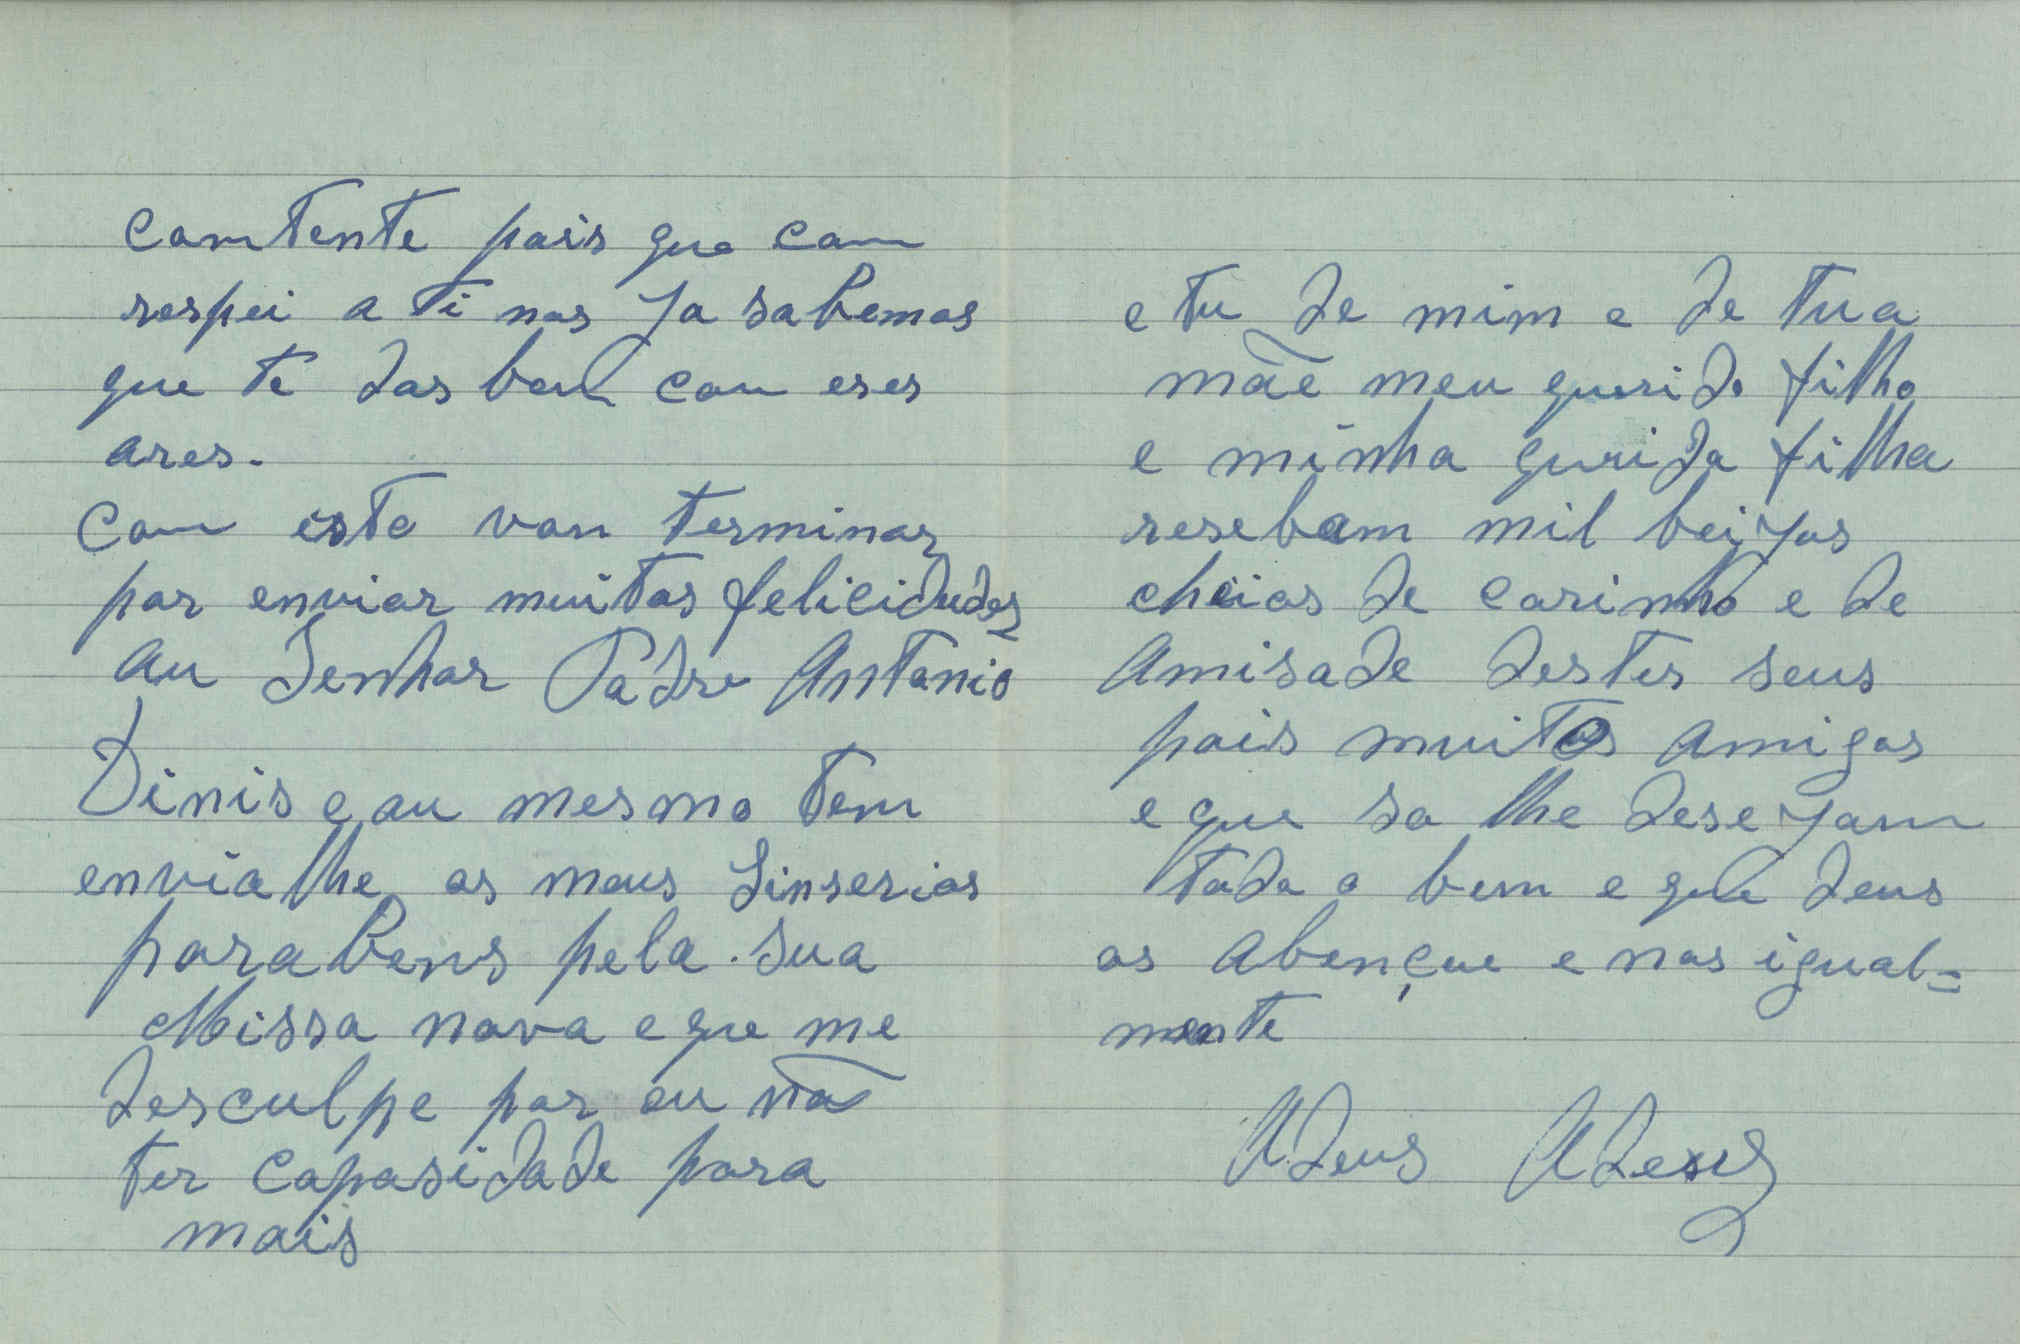 comtente pois que com
respei a ti nos ja sabemos
que te das bem com eses
ares.
Com esta vou terminar
por enviar muitas felicidades
au Senhor Padre Antonio
Dinis e au mesmo tem
envia lhe os meus sinserios
parabens pela sua
Missa nova e que me
desculpe por eu não
ter capasidade para
mais
e tu de mim e de tua
mãe meu querido filho
e minha qurida filha
resebam mil beijos
cheios de carinho e de
amisade destes seus
pais muitos amigos
e que so lhe desejam
todo o bem e que deus
os abençoe e nos igual=
mente
Adeus Adeus